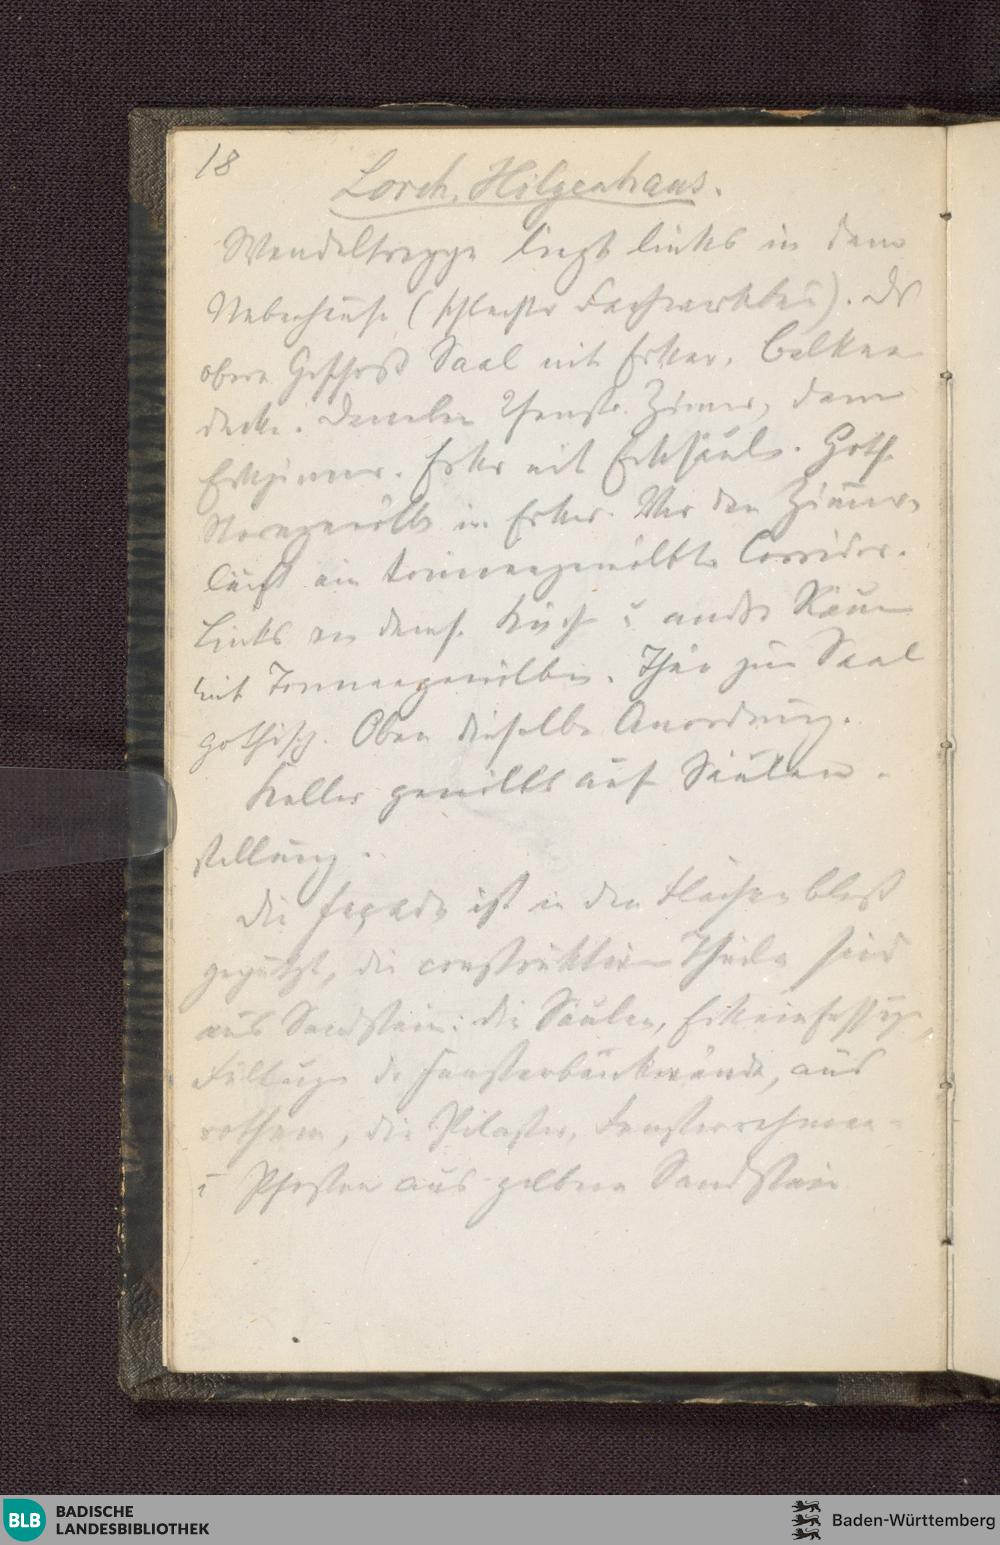 18
Lorch, Hilgenhaus.
Wendeltreppe liegt links in dem
Nebenhause (schlechter Fachwerkbau). Das
obere Geschoß Saal mit Erker. Balken
decke. Daneben 2fenstr. Zimmer, dann
Eckzimmer. Erker mit Ecksäule. Goth.
Sterngewölb in Erker. Vor den Zimmern
läuft ein tonnengewölbter Corridor.
Links an dems. Küche u andre Räume
mit Tonnengewölben. Thür zum Saal
gothisch. Oben dieselbe Anordnung.
Keller gewölbt auf Säulen-
stellung.
Die Façade ist in den Flächen bloß
geputzt, die construktiven Theile sind
aus Sandstein: die Säulen, Eckeinfassung,
Füllunge der Fensterbänkwände, aus
rothem, die Pilaster, Fensterrahmen
u Pfosten aus gelbem Sandstein
BLB
BADISCHE
LANDESBIBLIOTHEK
Baden-Württemberg